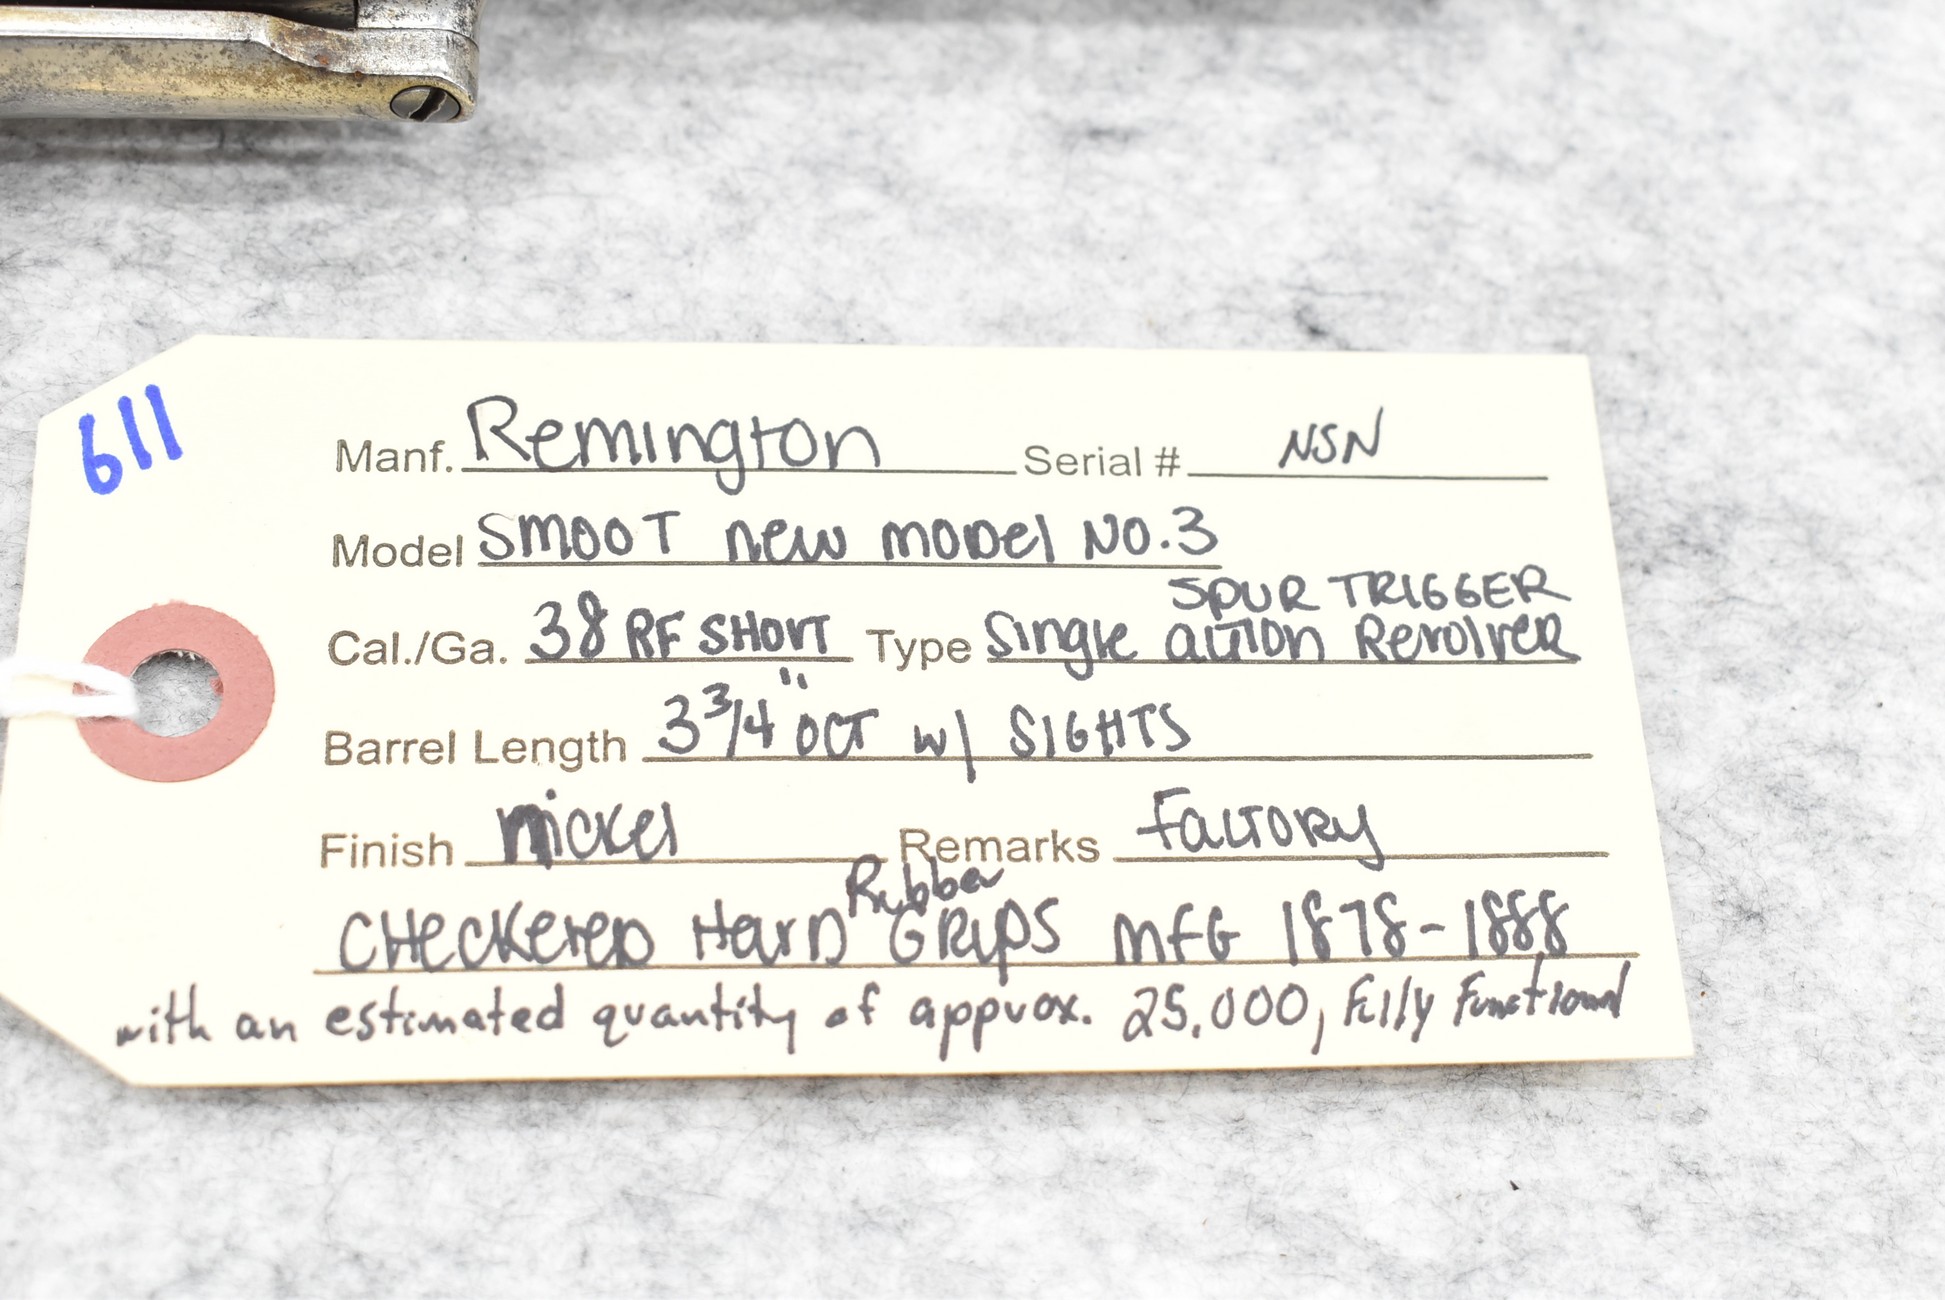 611
Manf. Remington Serial # NSN
Model Smoot new model No.3
SPUR TRIGGER
Cal./Ga. 38 RF SHORT Type Single action Revolver
Barrel Length 3 3/4" OCT w/ SIGHTS
Finish nickel Remarks Factory
Rubber
CHECKERED HARD GRIPS MFG 1878-1888
with an estimated quantity of approx. 25,000, Fully Functional